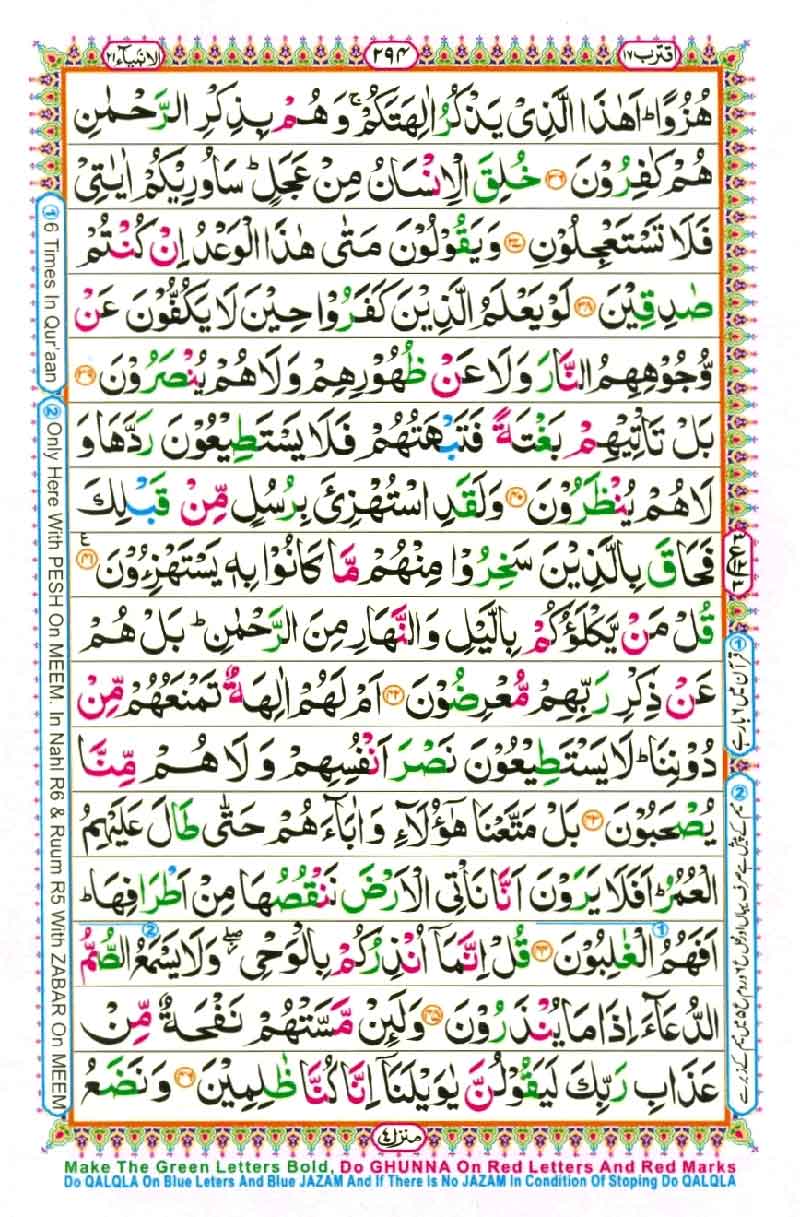 اقترب ١٧
٢٩٤
الانبیآء ٢١
هُزُوًا ؕ اَهٰذَا الَّذِیْ یَذْكُرُ اٰلِهَتَكُمْ ۚ وَ هُمْ بِذِكْرِ الرَّحْمٰنِ
هُمْ كٰفِرُوْنَ ﴿۳۶﴾ خُلِقَ الْاِنْسَانُ مِنْ عَجَلٍ ؕ سَاُورِیْكُمْ اٰیٰتِیْ
فَلَا تَسْتَعْجِلُوْنِ ﴿۳۷﴾ وَ یَقُوْلُوْنَ مَتٰی هٰذَا الْوَعْدُ اِنْ كُنْتُمْ
صٰدِقِیْنَ ﴿۳۸﴾ لَوْ یَعْلَمُ الَّذِیْنَ كَفَرُوْا حِیْنَ لَا یَكُفُّوْنَ عَنْ
وُّجُوْهِهِمُ النَّارَ وَ لَا عَنْ ظُهُوْرِهِمْ وَ لَا هُمْ یُنْصَرُوْنَ ﴿۳۹﴾
بَلْ تَاْتِیْهِمْ بَغْتَةً فَتَبْهَتُهُمْ فَلَا یَسْتَطِیْعُوْنَ رَدَّهَا وَ
لَا هُمْ یُنْظَرُوْنَ ﴿۴۰﴾ وَ لَقَدِ اسْتُهْزِئَ بِرُسُلٍ مِّنْ قَبْلِكَ
فَحَاقَ بِالَّذِیْنَ سَخِرُوْا مِنْهُمْ مَّا كَانُوْا بِهٖ یَسْتَهْزِءُوْنَ ﴿۴۱﴾ ع
قُلْ مَنْ یَّكْلَؤُكُمْ بِالَّیْلِ وَ النَّهَارِ مِنَ الرَّحْمٰنِ ؕ بَلْ هُمْ
عَنْ ذِكْرِ رَبِّهِمْ مُّعْرِضُوْنَ ﴿۴۲﴾ اَمْ لَهُمْ اٰلِهَةٌ تَمْنَعُهُمْ مِّنْ
دُوْنِنَا ؕ لَا یَسْتَطِیْعُوْنَ نَصْرَ اَنْفُسِهِمْ وَ لَا هُمْ مِّنَّا
یُصْحَبُوْنَ ﴿۴۳﴾ بَلْ مَتَّعْنَا هٰۤؤُلَآءِ وَ اٰبَآءَهُمْ حَتّٰی طَالَ عَلَیْهِمُ
الْعُمُرُ ؕ اَفَلَا یَرَوْنَ اَنَّا نَاْتِی الْاَرْضَ نَنْقُصُهَا مِنْ اَطْرَافِهَا ؕ
اَفَهُمُ الْغٰلِبُوْنَ ﴿۴۴﴾ قُلْ اِنَّمَاۤ اُنْذِرُكُمْ بِالْوَحْیِ ۖؗ وَ لَا یَسْمَعُ الصُّمُّ
الدُّعَآءَ اِذَا مَا یُنْذَرُوْنَ ﴿۴۵﴾ وَ لَئِنْ مَّسَّتْهُمْ نَفْحَةٌ مِّنْ
عَذَابِ رَبِّكَ لَیَقُوْلُنَّ یٰوَیْلَنَاۤ اِنَّا كُنَّا ظٰلِمِیْنَ ﴿۴۶﴾ وَ نَضَعُ
منزل ٤
① 6 Times In Qur'aan
② Only Here With PESH On MEEM. In Nahl R6 & Ruum R5 With ZABAR On MEEM
① قرآن میں ٦ بار ہے
Make The Green Letters Bold, Do GHUNNA On Red Letters And Red Marks
Do QALQLA On Blue Leters And Blue JAZAM And If There Is No JAZAM In Condition Of Stoping Do QALQLA